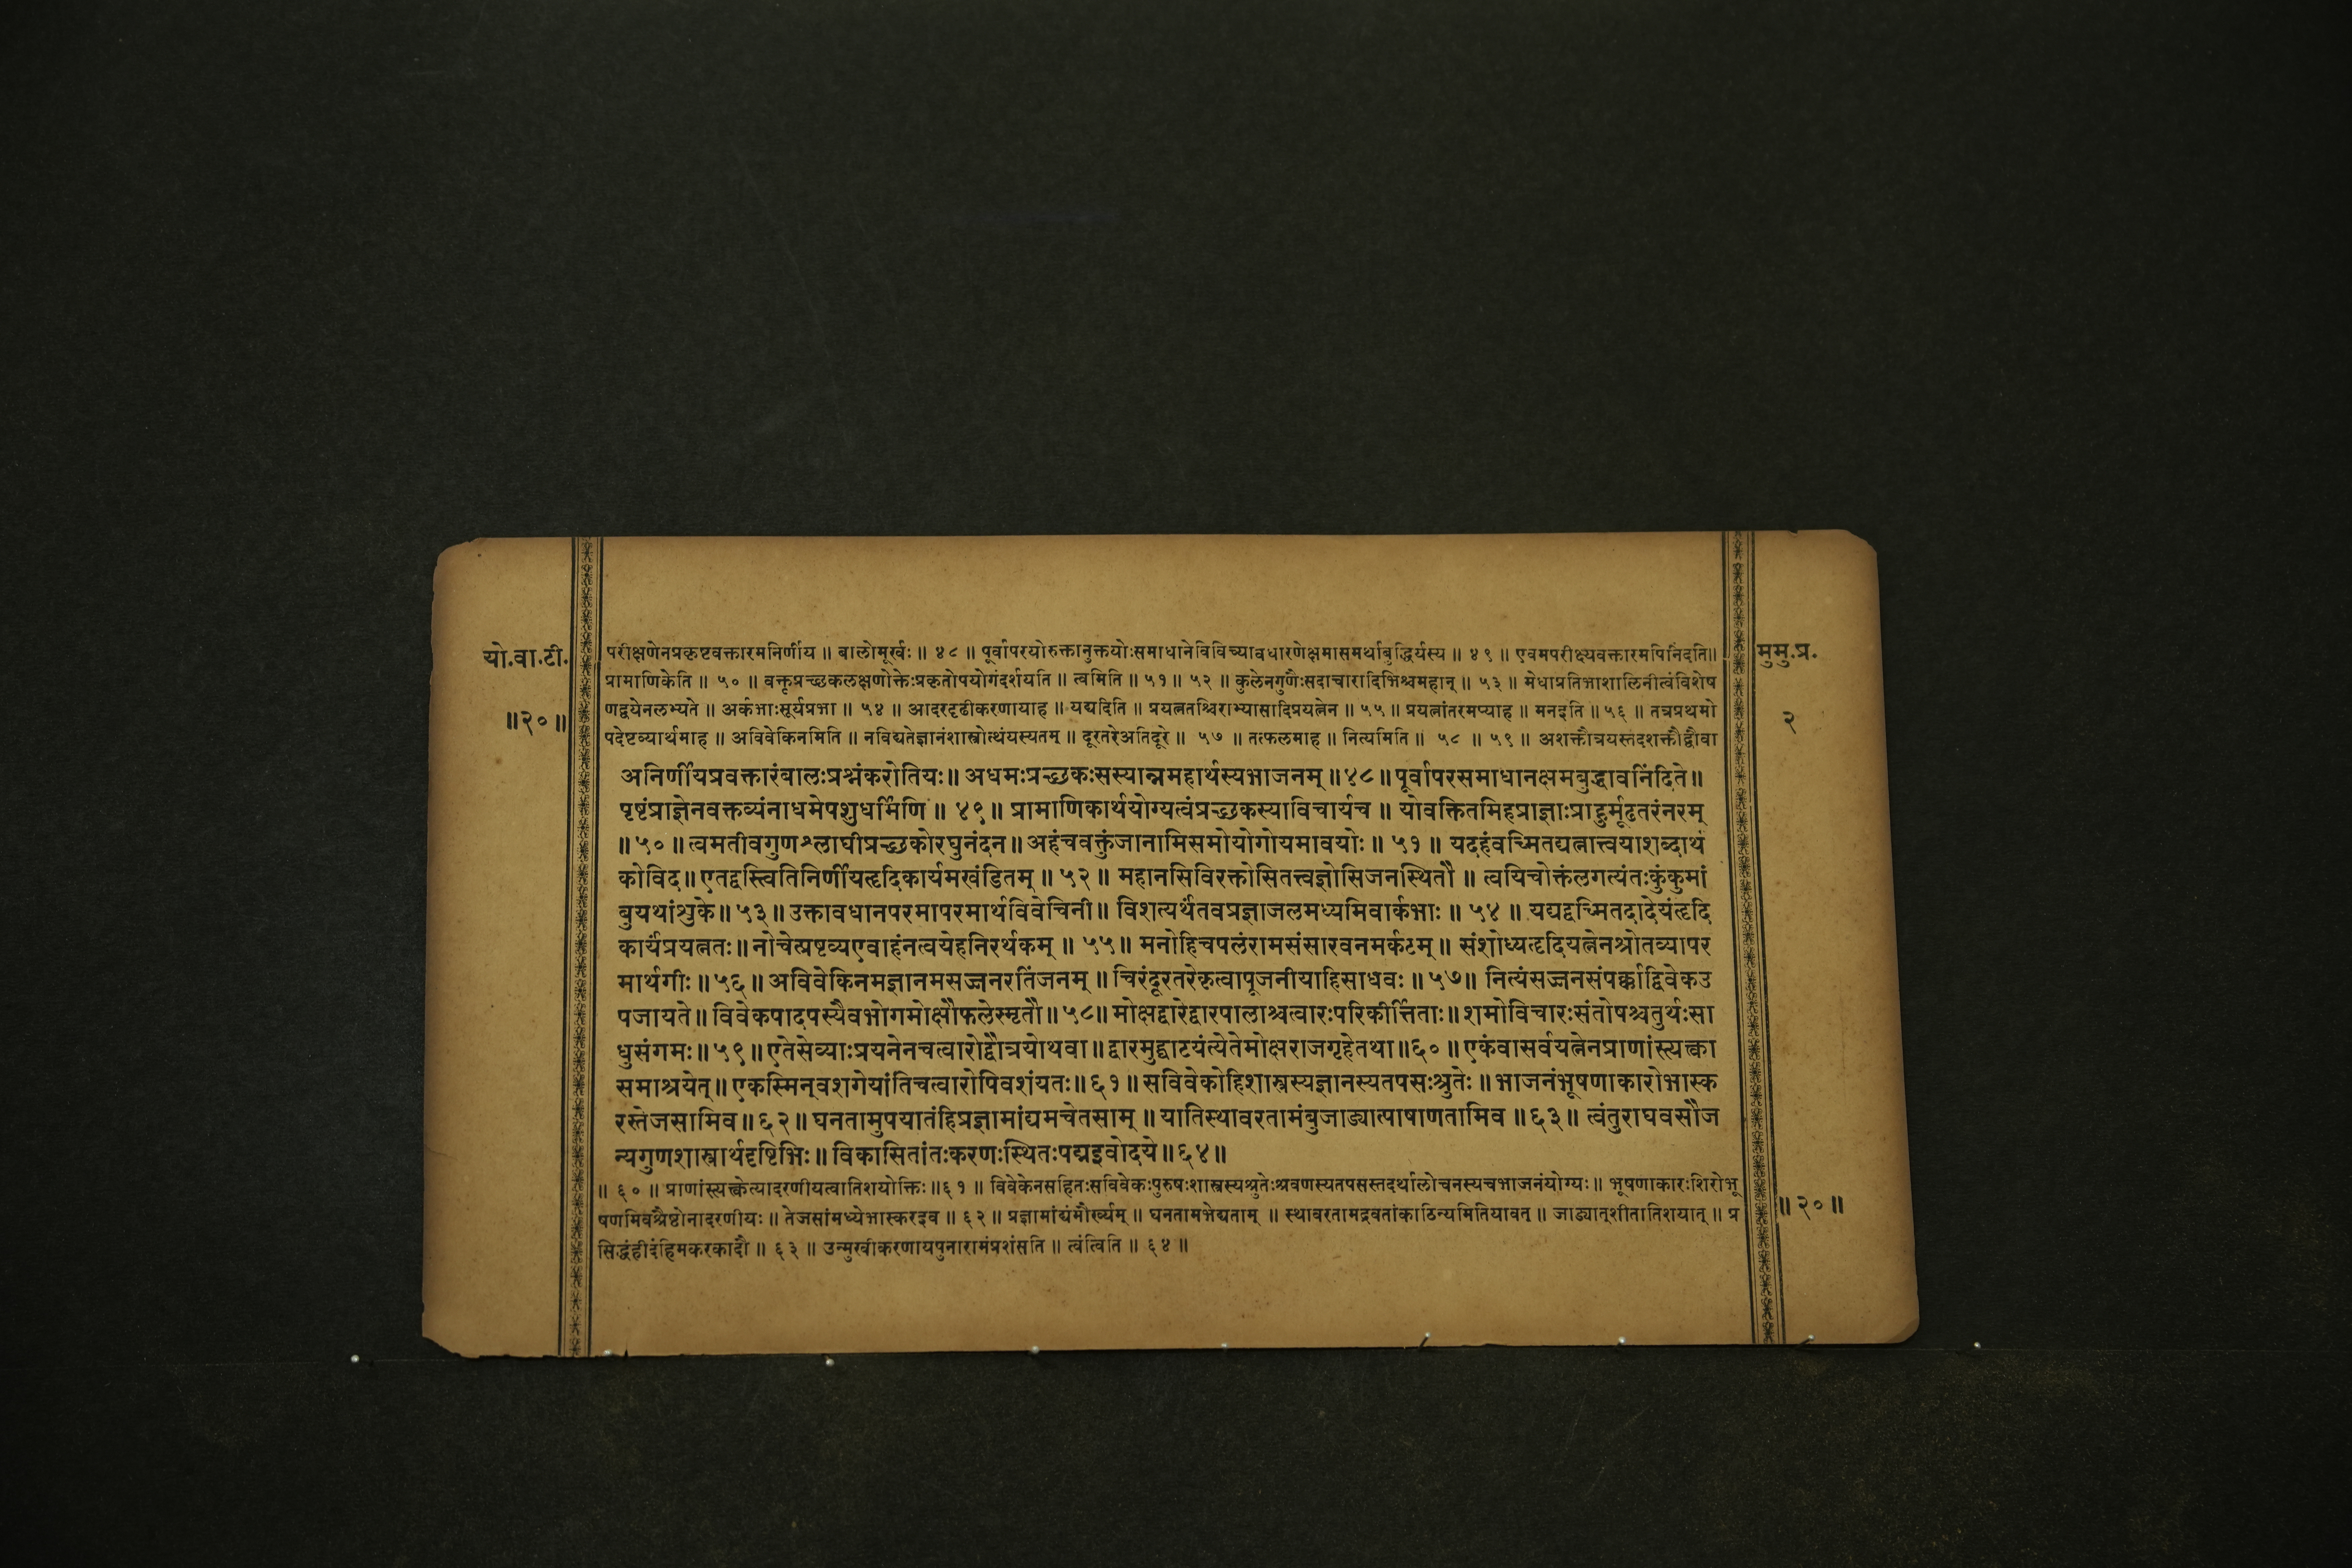 यो.वा.टी.
॥२०॥
मुमु.प्र.
२
परीक्षणेनप्रकृष्टवक्तारमनिर्णीय ॥ बालोमूर्खः ॥ ४८ ॥ पूर्वापरयोरुक्तानुक्तयोःसमाधानेविविच्यावधारणेक्षमासमर्थाबुद्धिर्यस्य ॥ ४९ ॥ एवमपरीक्ष्यवक्तारमपिनिंदति॥
प्रामाणिकेति ॥ ५० ॥ वक्तृप्रच्छकलक्षणोक्तेःप्रकृतोपयोगंदर्शयति ॥ त्वमिति ॥ ५१ ॥ ५२ ॥ कुलेनगुणैःसदाचारादिभिश्चमहान् ॥ ५३ ॥ मेधाप्रतिभाशालिनीत्वंविशेष
णद्वयेनलभ्यते ॥ अर्कभाःसूर्यप्रभा ॥ ५४ ॥ आदरदृढीकरणायाह ॥ यद्यदिति ॥ प्रयत्नतश्चिराभ्यासादिप्रयत्नेन ॥ ५५ ॥ प्रयत्नांतरमप्याह ॥ मनइति ॥ ५६ ॥ तत्रप्रथमो
पदेष्टव्यार्थमाह ॥ अविवेकिनमिति ॥ नविद्यतेज्ञानंशास्त्रोत्थंयस्यतम् ॥ दूरतरेअतिदूरे ॥ ५७ ॥ तत्फलमाह ॥ नित्यमिति ॥ ५८ ॥ ५९ ॥ अशक्तौत्रयस्तदशक्तौद्वौवा
अनिर्णीयप्रवक्तारंबालःप्रश्नंकरोतियः॥ अधमःप्रच्छकःसस्यान्नमहार्थस्यभाजनम् ॥४८॥ पूर्वापरसमाधानक्षमबुद्धावनिंदिते॥
पृष्टंप्राज्ञेनवक्तव्यंनाधमेपशुधर्मिणि ॥ ४९॥ प्रामाणिकार्थयोग्यत्वंप्रच्छकस्याविचार्यच ॥ योवक्तितमिहप्राज्ञाःप्राहुर्मूढतरंनरम्
॥५०॥ त्वमतीवगुणश्लाघीप्रच्छकोरघुनंदन॥ अहंचवक्तुंजानामिसमोयोगोयमावयोः॥ ५१॥ यदहंवच्मितद्यत्नात्त्वयाशब्दार्थ
कोविद॥ एतद्वस्त्वितिनिर्णीयहृदिकार्यमखंडितम् ॥ ५२॥ महानसिविरक्तोसितत्त्वज्ञोसिजनस्थितौ ॥ त्वयिचोक्तंलगत्यंतःकुंकुमां
बुयथांशुके॥ ५३॥ उक्तावधानपरमापरमार्थविवेचिनी॥ विशत्यर्थंतवप्रज्ञाजलमध्यमिवार्कभाः॥ ५४॥ यद्यद्वच्मितदादेयंहृदि
कार्यंप्रयत्नतः॥ नोचेत्प्रष्टव्यएवाहंनत्वयेहनिरर्थकम् ॥ ५५॥ मनोहिचपलंरामसंसारवनमर्कटम्॥ संशोध्यहृदियत्नेनश्रोतव्यापर
मार्थगीः॥५६॥ अविवेकिनमज्ञानमसज्जनरतिंजनम् ॥ चिरंदूरतरेकृत्वापूजनीयाहिसाधवः॥५७॥ नित्यंसज्जनसंपर्काद्विवेकउ
पजायते॥ विवेकपादपस्यैवभोगमोक्षौफलेस्मृतौ॥५८॥ मोक्षद्वारेद्वारपालाश्चत्वारःपरिकीर्त्तिताः॥ शमोविचारःसंतोषश्चतुर्थःसा
धुसंगमः॥५९॥ एतेसेव्याःप्रयत्नेनचत्वारोद्वौत्रयोथवा॥ द्वारमुद्घाटयंत्येतेमोक्षराजगृहेतथा॥६०॥ एकंवासर्वयत्नेनप्राणांस्त्यक्त्वा
समाश्रयेत्॥ एकस्मिन्वशगेयांतिचत्वारोपिवशंयतः॥६१॥ सविवेकोहिशास्त्रस्यज्ञानस्यतपसःश्रुतेः॥ भाजनंभूषणाकारोभास्क
रस्तेजसामिव॥६२॥ घनतामुपयातंहिप्रज्ञामांद्यमचेतसाम् ॥ यातिस्थावरतामंबुजाड्यात्पाषाणतामिव॥६३॥ त्वंतुराघवसौज
न्यगुणशास्त्रार्थदृष्टिभिः॥ विकासितांतःकरणःस्थितःपद्मइवोदये॥६४॥
॥ ६० ॥ प्राणांस्त्यक्त्वेत्यादरणीयत्वातिशयोक्तिः॥६१ ॥ विवेकेनसहितःसविवेकःपुरुषःशास्त्रस्यश्रुतेःश्रवणस्यतपसस्तदर्थालोचनस्यचभाजनंयोग्यः॥ भूषणाकारःशिरोभू
षणमिवश्रैष्ठ्येनादरणीयः ॥ तेजसांमध्येभास्करइव ॥ ६२ ॥ प्रज्ञामांद्यंमौर्ख्यम् ॥ घनतामभेद्यताम् ॥ स्थावरतामद्रवतांकाठिन्यमितियावत् ॥ जाड्यात्शीतातिशयात् ॥ प्र
सिद्धंहीदंहिमकरकादौ ॥ ६३ ॥ उन्मुखीकरणायपुनारामंप्रशंसति ॥ त्वंत्विति ॥ ६४ ॥
॥२०॥